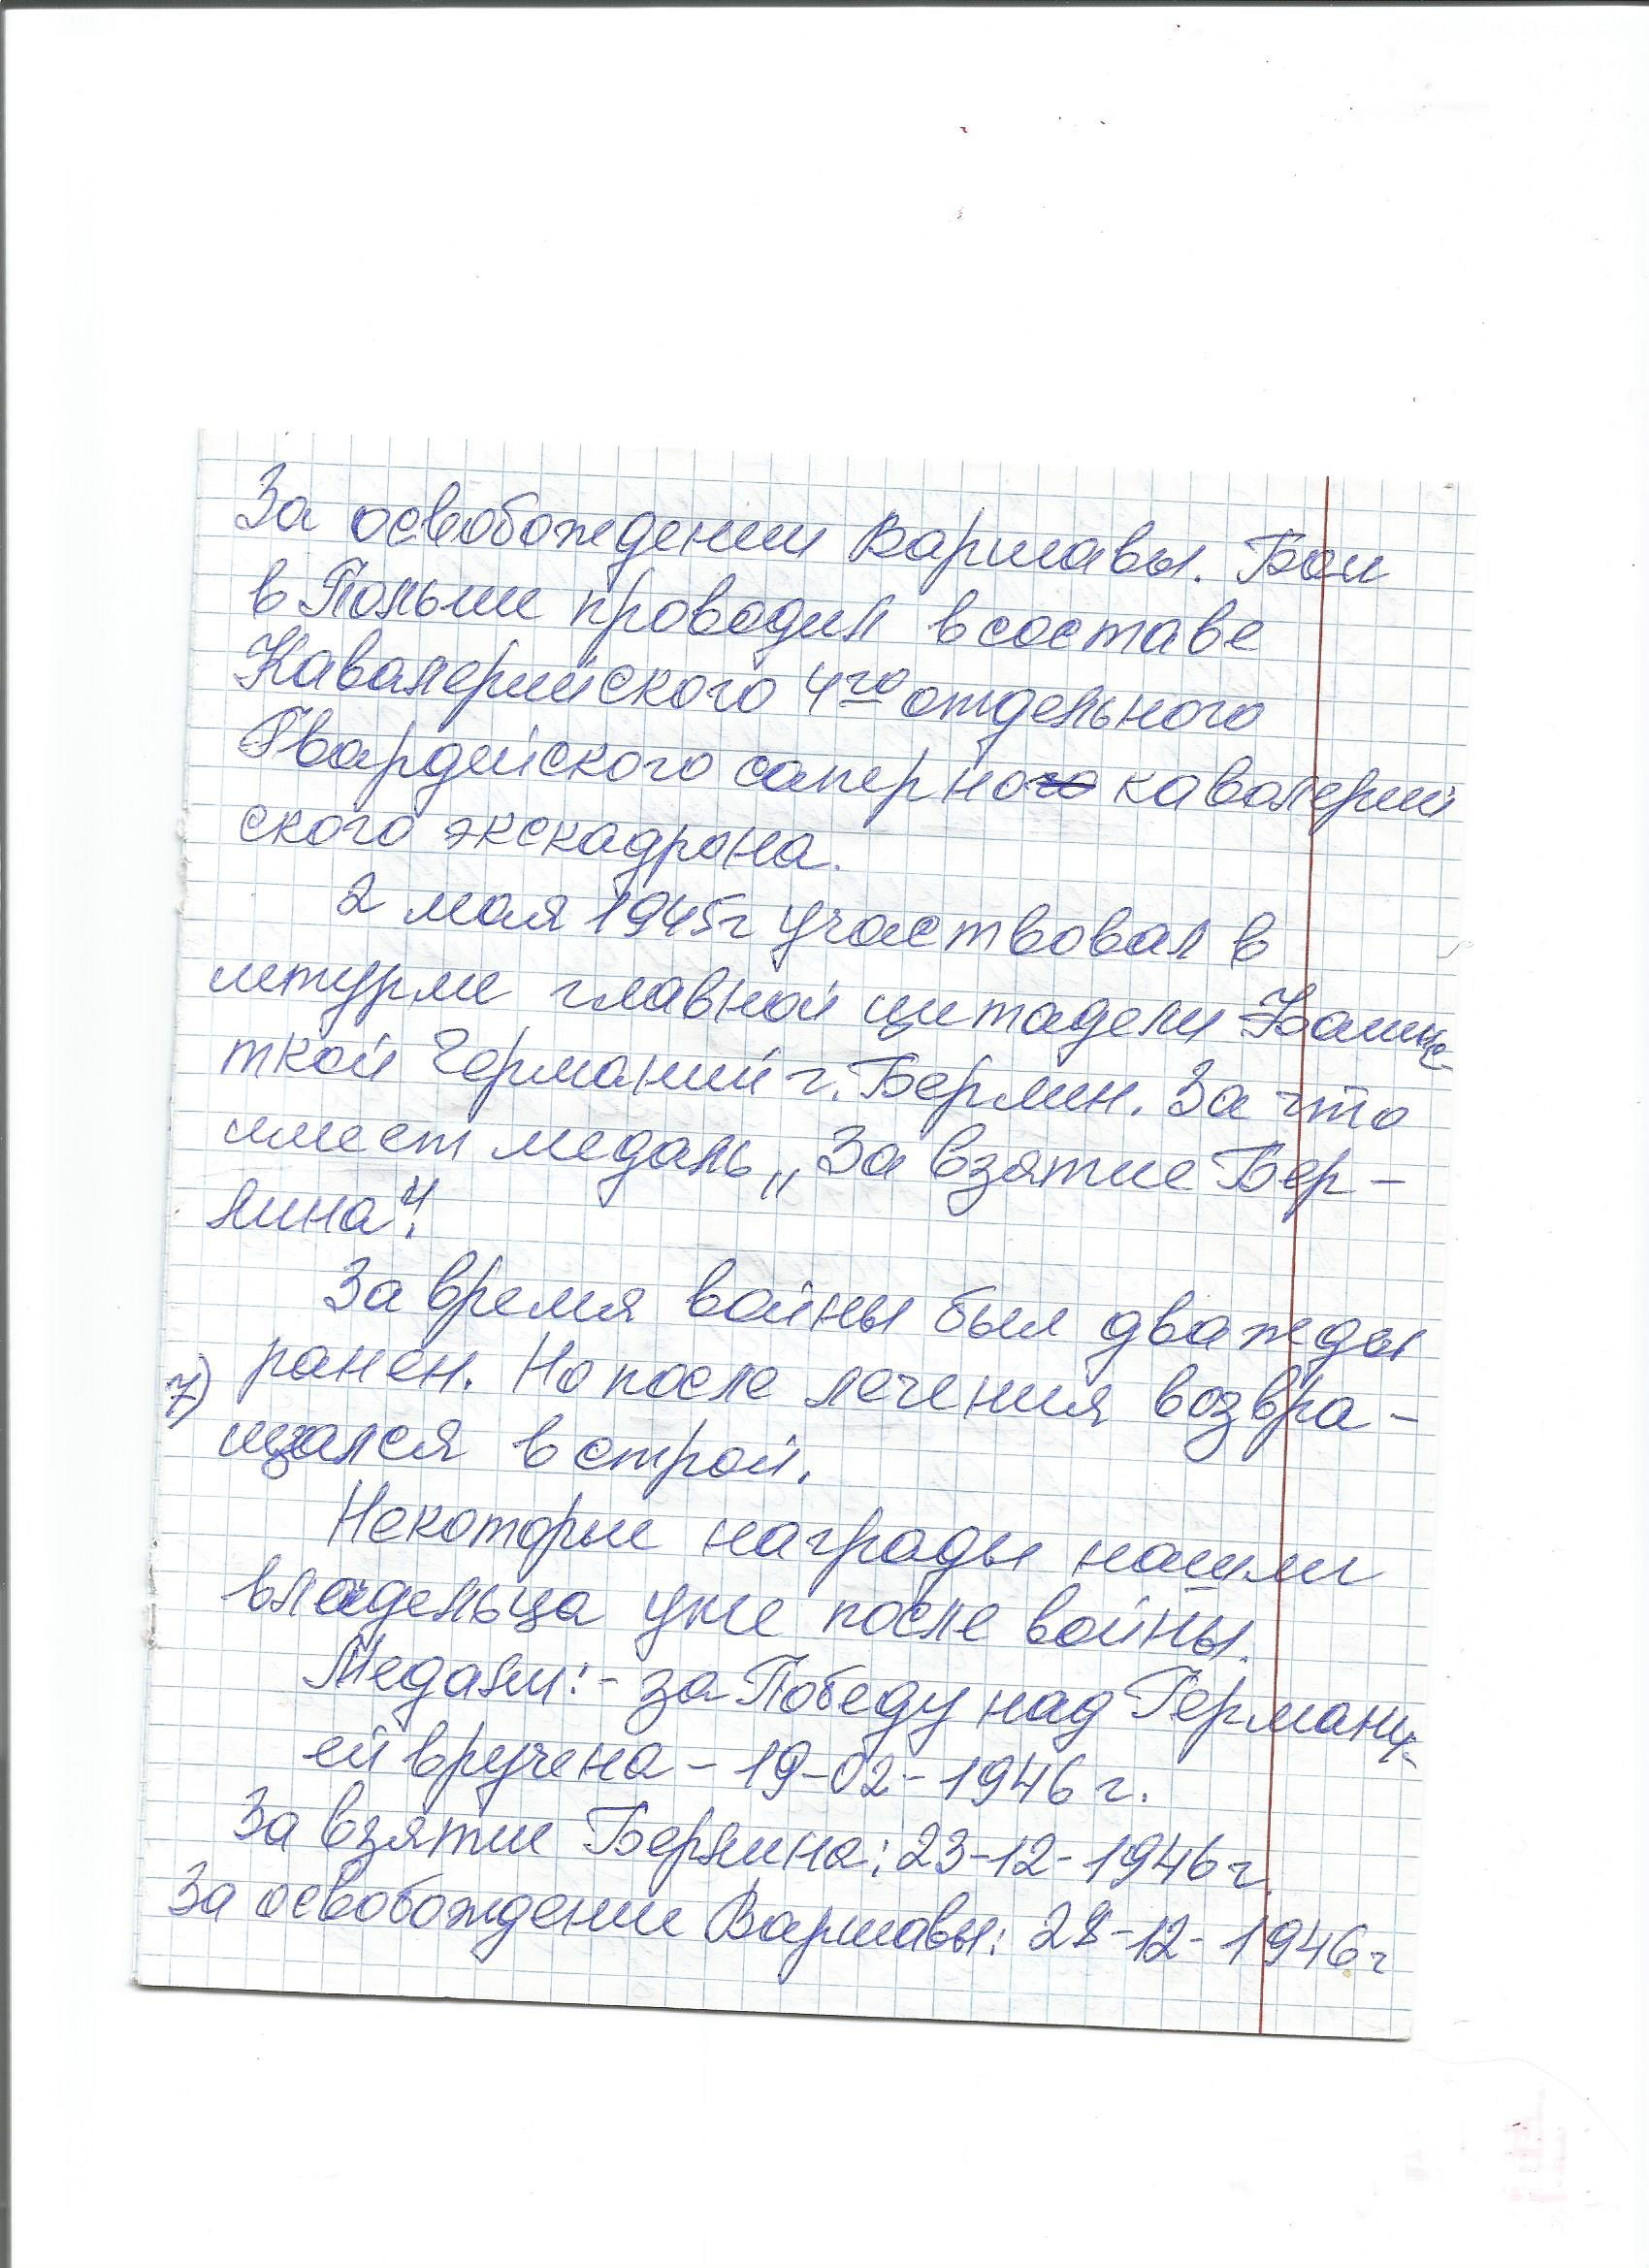 За освобождении Варшавы. Бои
в Польши проводил в составе
Кавалерийского 4го отдельного
Гвардейского саперного кавалерий
ского экскадрона.
2 мая 1945г участвовал в
штурме главной цитадели Фашис
ткой Германий г. Берлин. За что
имеет медаль „За взятие Бер-
лина".
За время войны был дважды
7) ранен. Но после лечения возвра-
щался в строй.
Некоторые награды нашли
владельца уже после войны.
Медали: - за Победу над Германи-
ей вручена - 19-02-1946 г.
За взятии Берлина: 23-12-1946г.
За освобождении Варшавы: 28-12-1946г